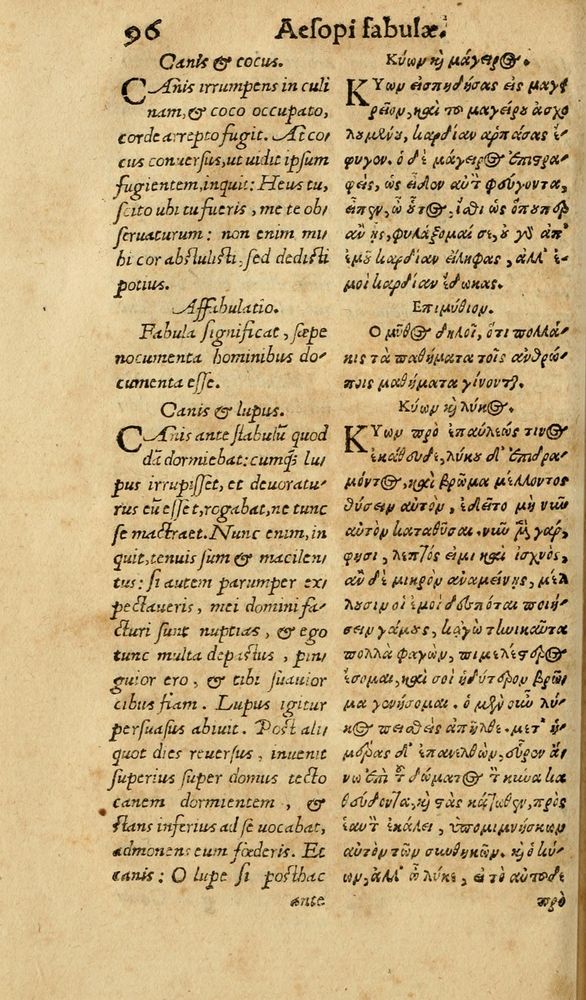 96 Aesopi fabulæ.
Canis & cocus.
CAnis irrumpens in culi
nam, & coco occupato,
corde arrepto fugit. At co
cus conuersus, ut uidit ipsum
fugientem, inquit: Heus tu,
scito ubi tu fueris, me te ob
seruaturum: non enim mi
hi cor abstulisti, sed dedisti
potius.
Affabulatio.
Fabula significat, sæpe
nocumenta hominibus do
cumenta esse.
Canis & lupus.
CAnis ante stabulũ quod
dã dormiebat: cumq́; lu
pus irrupisset, et deuoratu
rus eũ esset, rogabat, ne tunc
se mactraet. Nunc enim, in
quit, tenuis sum & macilen
tus: si autem parumper ex
pectaueris, mei domini fa
cturi sunt nuptias, & ego
tunc multa depastus, pin
guior ero, & tibi suauior
cibus fiam. Lupus igitur
persuasus abiuit. Post ali
quot dies reuersus, inuenit
superius super domus tecto
canem dormientem, &
stans inferius ad se uocabat,
admonens eum fœderis. Et
canis: O lupe si posthac
ante
Κύων κ̀ μάγειρος.
ΚΥων εἰσπηδήσας εἰς μαγ
ρεῖον, καὶ το μαγείρου ἀσχο
λουμένου, καρδίαν ἁρπάσας ἔ
φυγον. ὁ δὲ μάγειρος ἐπιστρα
φεὶς, ὡς εἶδον αὐτὸν φεύγοντα,
εἶπεν, ὦ οὗτος, ἴσθι ὡς ὅπουπερ
ἂν ᾖς, φυλάξομαί σε, οὐ γὰρ ἀπ'
ἐμοῦ καρδίαν εἴληφας, ἀλλ' ἐ
μοὶ καρδίαν ἔδωκας.
Επιμύθιον.
Ο μῦθος δηλοῖ, ὅτι πολλά
κις τὰ παθήματα τοῖς ἀνθρώ
ποις μαθήματα γίνονται.
Κύων κ̀ λύκος.
ΚΥων πρὸ ἐπαύλεώς τινος
ἐκάθευδε, λύκου δ' ἐπιδρα
μόντος, καὶ βρῶμα μέλλοντος
θύσειν αὐτὸν, ἐδεῖτο μὴ νῦν
αὐτὸν καταθῦσαι. νῦν μὲν γάρ,
φησι, λεπτός εἰμι καὶ ἰσχνὸς,
ἂν δὲ μικρὸν ἀναμείνῃς, μέλ
λουσιν οἱ ἐμοὶ δεσπόται ποιή
σειν γάμους, κἀγὼ τηνικαῦτα
πολλὰ φαγὼν, πιμελέστερος
ἔσομαι, καὶ σοὶ ἡδύτερον βρῶ
μα γενήσομαι. ὁ μὲν οὖν λύ
κος πεισθεὶς ἀπῆλθε. μεθ' ἡ
μέρας δ' ἐπανελθὼν, εὗρον ἄ
νω ἐπὶ τοῦ δώματος τὸν κύνα κα
θεύδοντα, κ̀ στὰς κάτωθεν, πρὸς
ἑαυτὸν ἐκάλει, ὑπομιμνήσκων
αὐτὸν τῶν συνθηκῶν. κ̀ ὁ κύ
ων, ἀλλ' ὦ λύκε, εἰ τὸ ἀπὸ τοῦδε
πρὸ